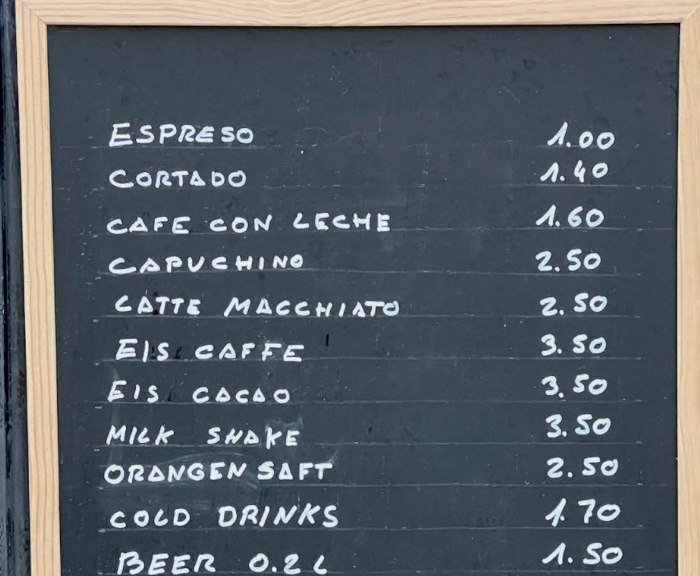 ESPRESO 1.00
CORTADO 1.40
CAFE CON LECHE 1.60
CAPUCHINO 2.50
LATTE MACCHIATO 2.50
EIS CAFFE 3.50
EIS CACAO 3.50
MILK SHAKE 3.50
ORANGEN SAFT 2.50
COLD DRINKS 1.70
BEER 0.2 L 1.50